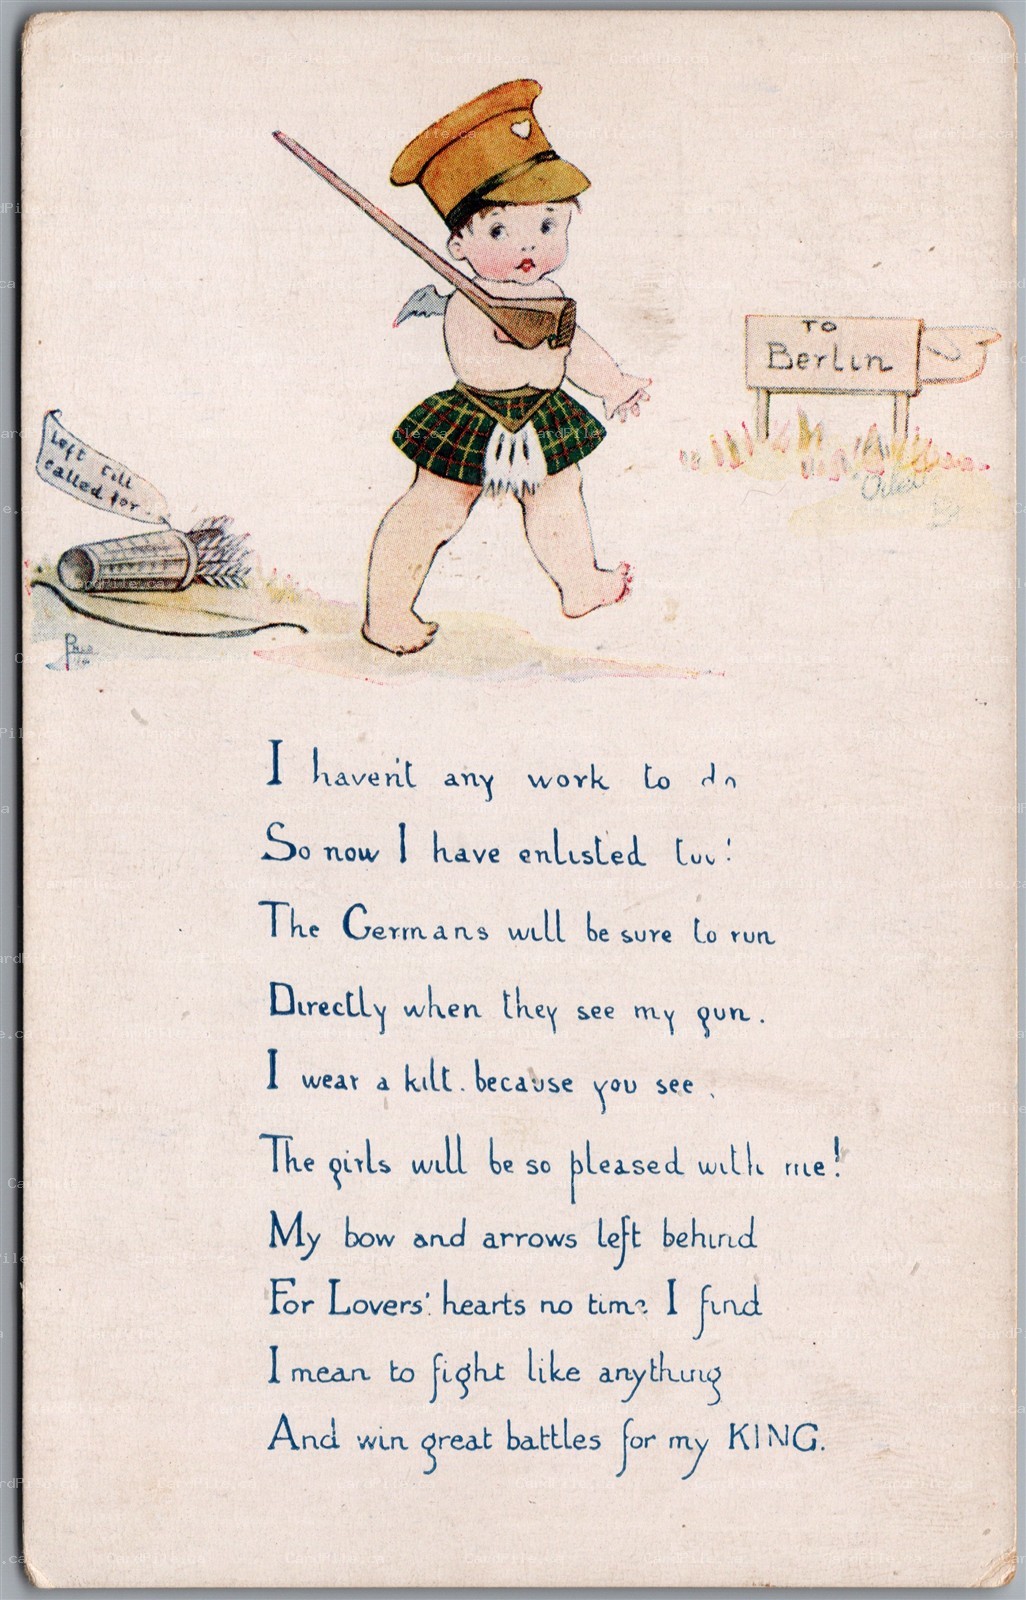 TO
Berlin
Left till
called for.
I haven't any work to do
So now I have enlisted too!
The Germans will be sure to run
Directly when they see my gun.
I wear a kilt. because you see,
The girls will be so pleased with me!
My bow and arrows left behind
For Lovers' hearts no time I find
I mean to fight like anything
And win great battles for my KING.
CardPile.ca